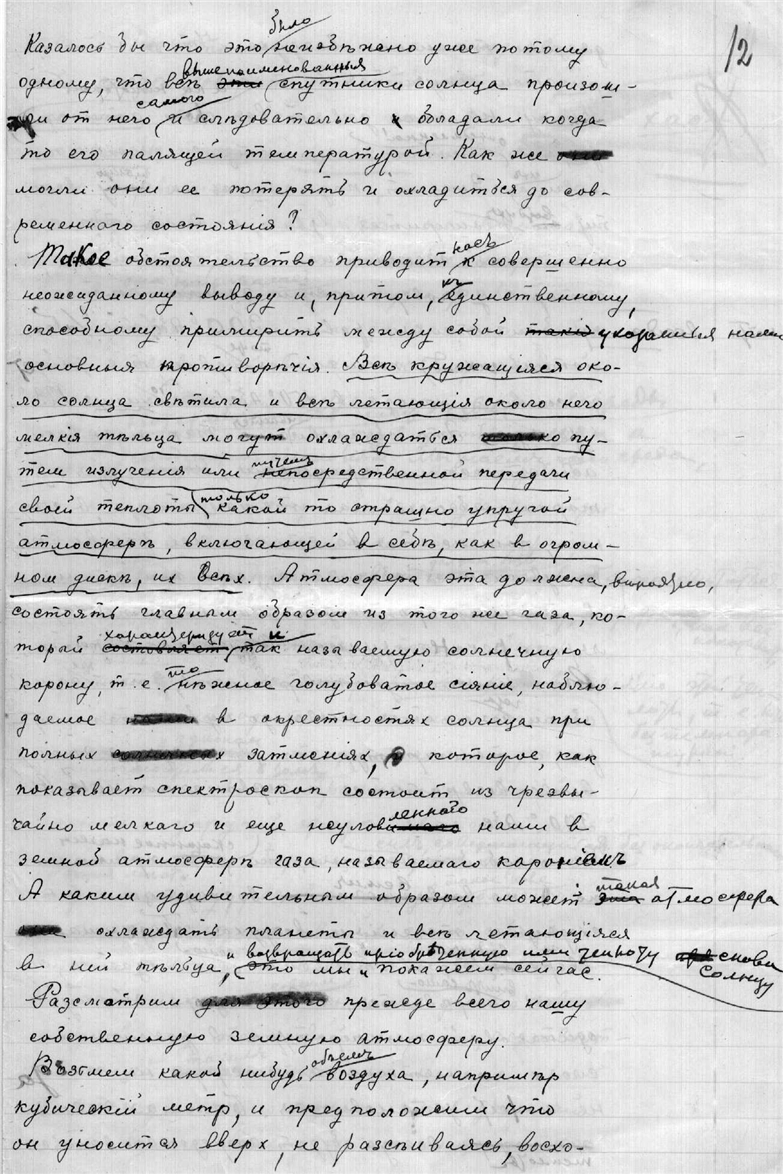 12
Казалось бы что это было неизбѣжно уже потому
одному, что всѣ вышепоименованныя спутники солнца произош-
ли от него самого и слѣдовательно обладали когда
то его палящей температурой. Как же
могли они ее потерять и охладиться до сов-
ременнаго состоянія?
Такое обстоятельство приводит насъ к совершенно
неожиданному выводу и, притом, къ единственному,
способному примирить между собой такія указанныя нами
основныя противорѣчія. Всѣ кружащіяся око-
ло солнца свѣтила и всѣ летающія около него
мелкія тѣльца могут охлаждаться только пу-
тем излученія или путемъ непосредственной передачи
своей теплоты только какой то страшно упругой
атмосферѣ, включающей в себѣ, как в огром-
ном дискѣ, их всѣх. Атмосфера эта должна, вѣроятно,
состоять главным образом из того же газа, ко-
торый составляет характеризует и так называемую солнечную
корону, т.е. то нѣжное голубоватое сіяніе, наблю-
даемое в окрестностях солнца при
полных солнечных затменіях, и которое, как
показывает спектроскоп состоит из чрезвы-
чайно мелкаго и еще неуловленнаго нами в
земной атмосферѣ газа, называемаго короніемъ
А каким удивительным образом может эта такая атмосфера
охлаждать планеты и всѣ летающіяся
в ней тѣльца, и возвращать пріобрѣтенную ими теплоту снова
солнцу это мы и покажем сейчас.
Разсмотрим для этого прежде всего нашу
собственную земную атмосферу.
Възмем какой нибудь объемъ воздуха, напримѣр
кубическій метр, и предположим что
он уносится вверх, не разсѣиваясь, восхо-